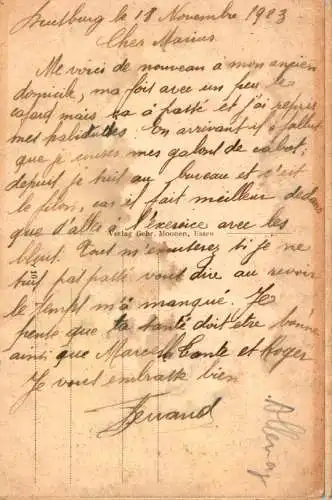 le 18 Novembre 1923
Cher Marius
Me voici de nouveau à mon ancien
domicile, ma foi avec un peu de
cafard mais ça a passé et j'ai repris
mes En arrivant il a fallut
que je couses mes galons de cabot,
depuis je suis au bureau et c'est
le filon, car il fait meilleur dedans
que d'aller à l'exercice avec les
bleus. Vous m'excuserez si je ne
suis pas passé vous dire au revoir
le temps m'a manqué. Je
pense que ta santé doit être bonne
ainsi que Marcel Tante et Roger
Je vous embrasse bien
Fernand
Verlag Gebr. Moonen, Essen